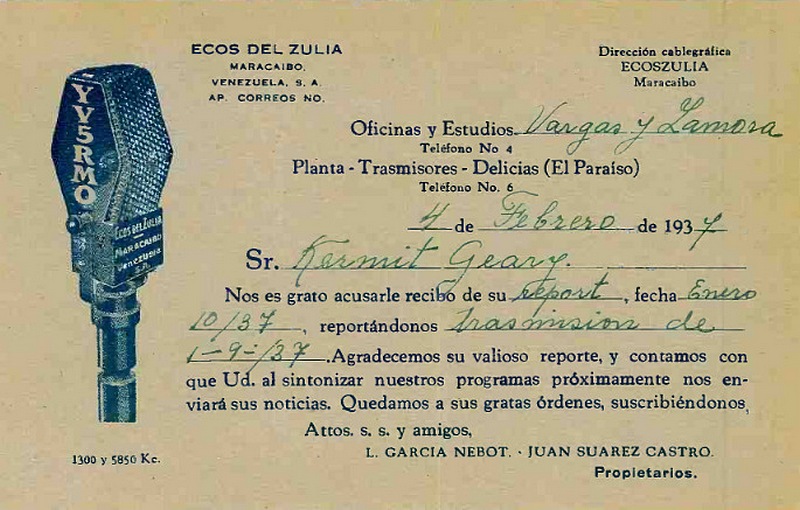 ECOS DEL ZULIA
MARACAIBO.
VENEZUELA, S. A.
AP. CORREOS NO.
Dirección cablegráfica
ECOSZULIA
Maracaibo
YV5RMO
ECOS DEL ZULIA
MARACAIBO
VENEZUELA
S.A.
Oficinas y Estudios. Vargas y Zamora
Teléfono No 4
Planta - Trasmisores - Delicias (El Paraíso)
Teléfono No. 6
4 de Febrero de 1937
Sr. Kermit Geary.
Nos es grato acusarle recibo de su report, fecha Enero
10/37, reportándonos trasmision de
1-9-/37. Agradecemos su valioso reporte, y contamos con
que Ud. al sintonizar nuestros programas próximamente nos en-
viará sus noticias. Quedamos a sus gratas órdenes, suscribiéndonos,
Attos. s. s. y amigos,
L. GARCIA NEBOT. - JUAN SUAREZ CASTRO.
Propietarios.
1300 y 5850 Kc.